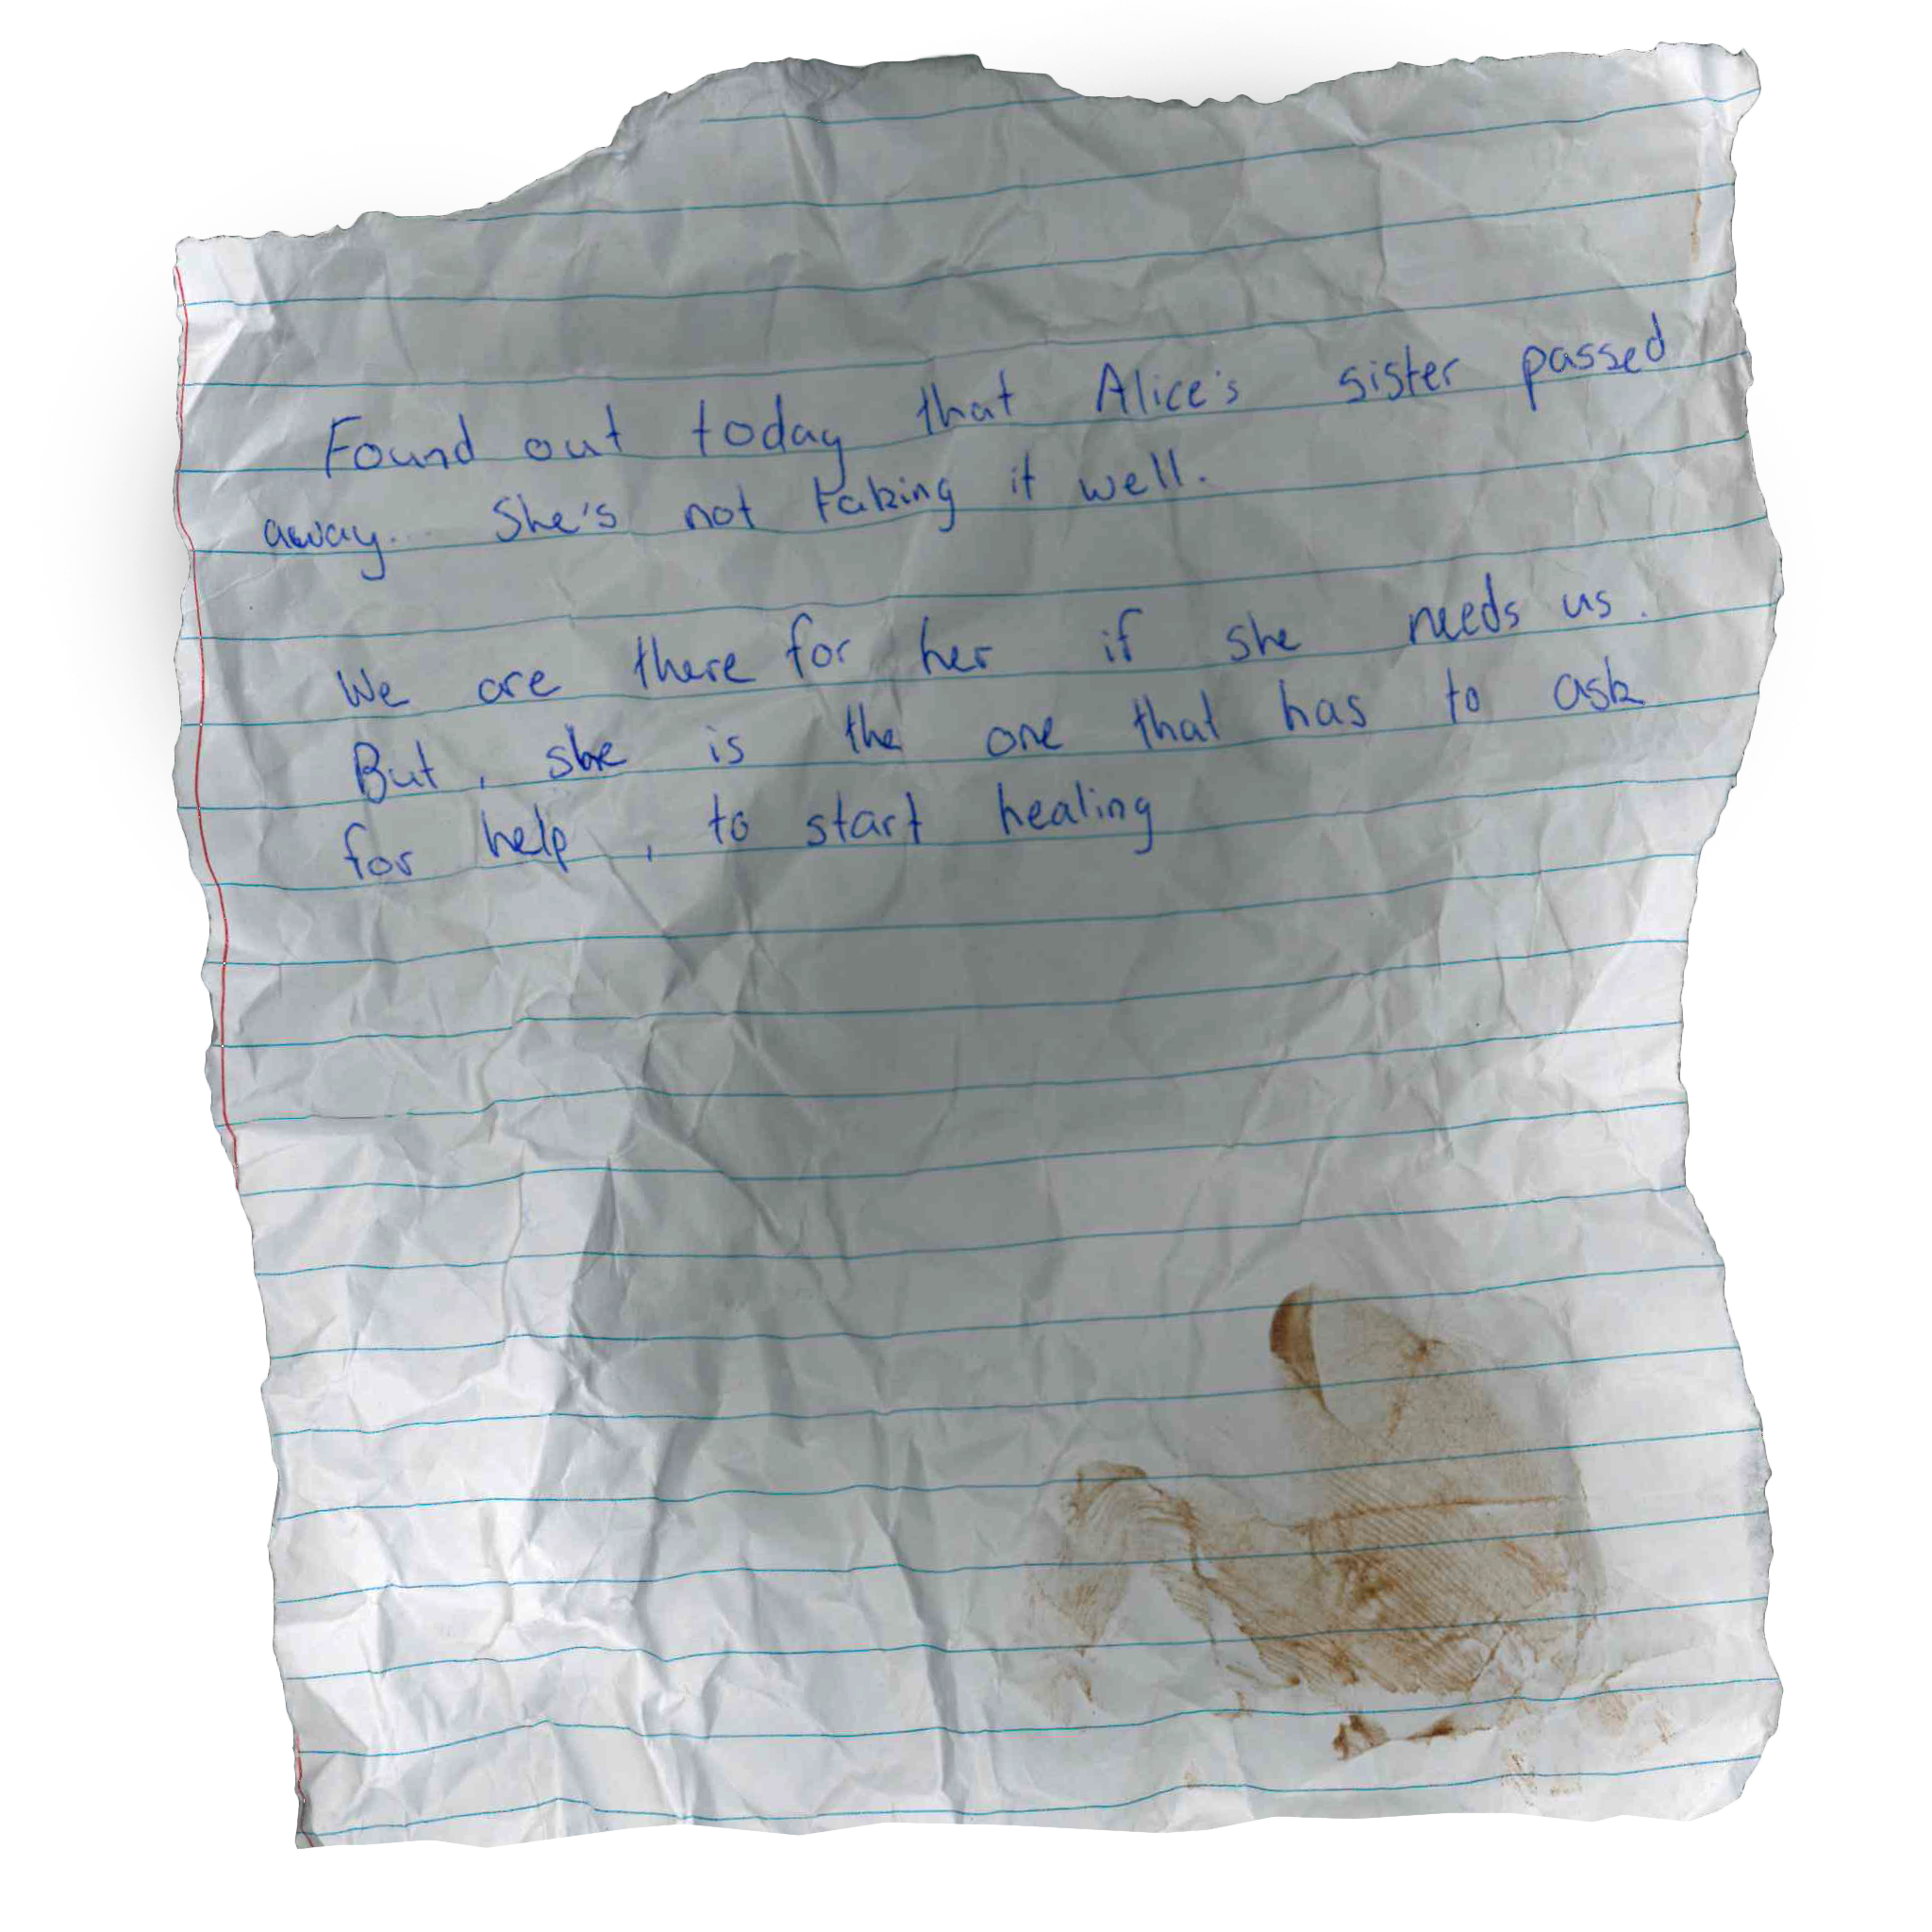 Found out today that Alice's sister passed
away... She's not taking it well.
We are there for her if she needs us.
But, she is the one that has to ask
for help, to start healing